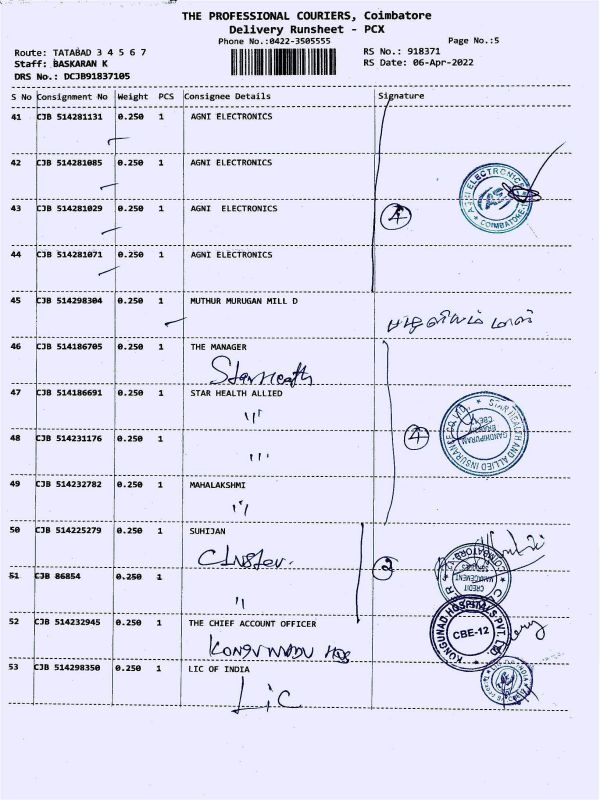 THE PROFESSIONAL COURIERS, Coimbatore
Delivery Runsheet - PCX
Phone No.:0422-3505555
Page No.:5
Route: TATABAD 3 4 5 6 7
RS No.: 918371
Staff: BASKARAN K
RS Date: 06-Apr-2022
DRS No.: DCJB91837105
S No Consignment No Weight PCS Consignee Details Signature
41 CJB 514281131 0.250 1 AGNI ELECTRONICS
42 CJB 514281085 0.250 1 AGNI ELECTRONICS
AGNI ELECTRONICS
COIMBATORE
43 CJB 514281029 0.250 1 AGNI ELECTRONICS
4
44 CJB 514281071 0.250 1 AGNI ELECTRONICS
45 CJB 514298304 0.250 1 MUTHUR MURUGAN MILL D
46 CJB 514186705 0.250 1 THE MANAGER
Star Heath
47 CJB 514186691 0.250 1 STAR HEALTH ALLIED
STAR HEALTH AND ALLIED INSURANCE CO.
GANDHIPURAM
BRANCH
CBE
4
48 CJB 514231176 0.250 1
49 CJB 514232782 0.250 1 MAHALAKSHMI
50 CJB 514225279 0.250 1 SUHIJAN
Cluster.
2
COIMBATORE
CREDIT
MANAGEMENT
51 CJB 86854 0.250 1
52 CJB 514232945 0.250 1 THE CHIEF ACCOUNT OFFICER
KONGUNAD HOSPITALS PVT. LTD
CBE-12
53 CJB 514298350 0.250 1 LIC OF INDIA
LIC